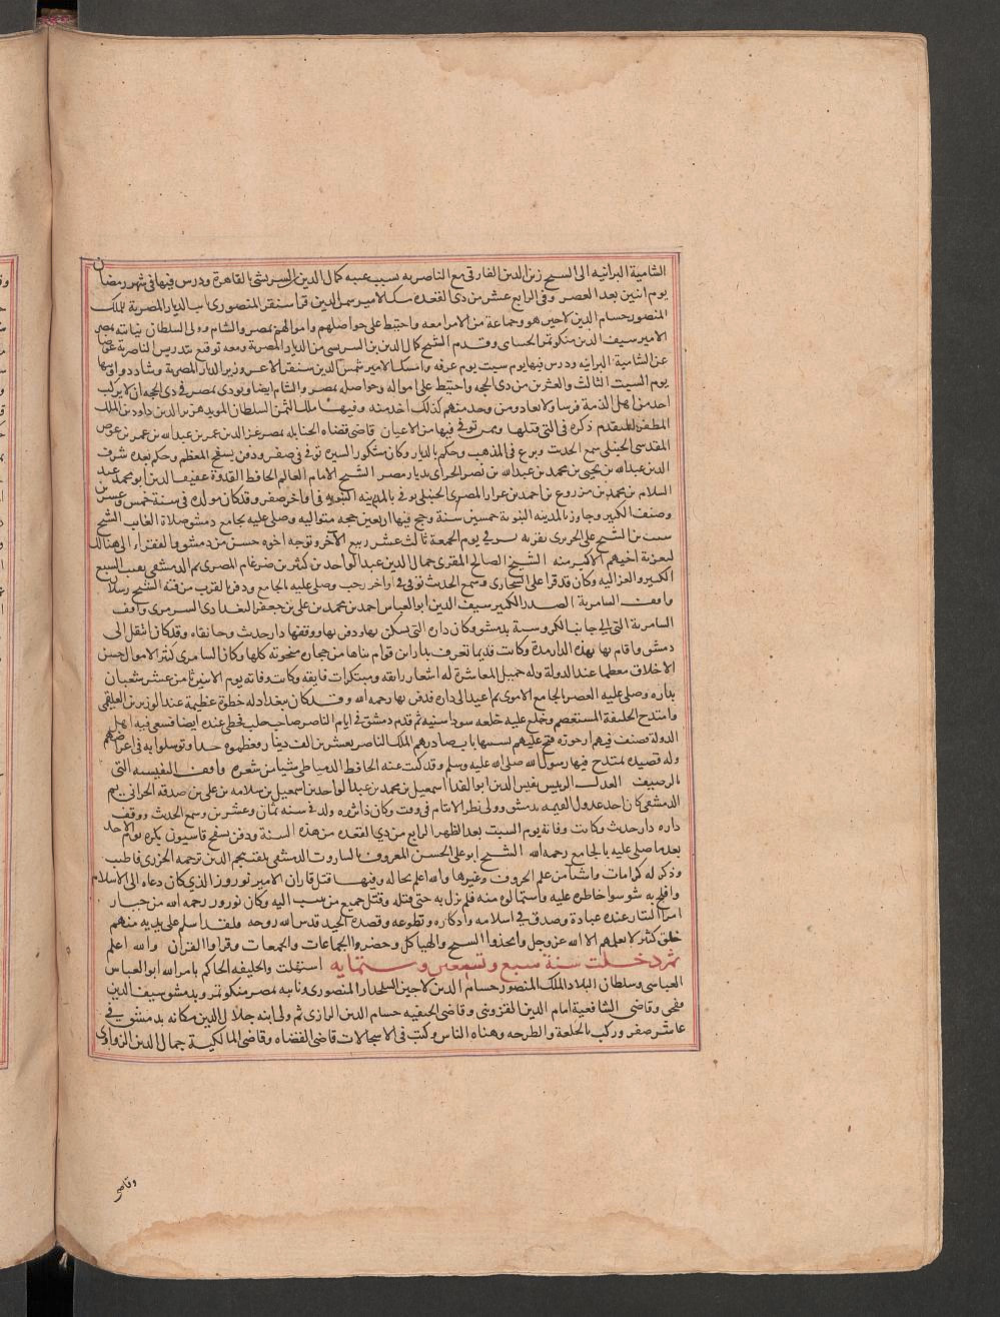 الشامية البرانيه الى الشيخ زين الدين الفارقي مع الناصريه بسبب غيبه كمال الدين بن الشريشي بالقاهرة ودرس فيها في شهر رمضان
يوم اثنين بعد العصر وفي الرابع عشر من ذي القعده مسك الامير شمس الدين قراسنقر المنصوري نايب الديار المصرية لملك
المنصور حسام الدين لاجين هو وجماعة من الامرا معه واحتيط على حواصلهم واموالهم بمصر والشام وولى السلطان نيابته بمصر
الامير سيف الدين منكوتمر الحسامي وقدم الشيخ كمال الدين بن الشريشي من الديار المصرية ومعه توقيع بتدريس الناصرية عوضا
عن الشامية البرانيه ودرس فيها يوم سبت يوم عرفه وامسك الامير شمس الدين سنقر الاعسر وزير الديار المصرية وشاد دواوينها
يوم السبت الثالث والعشرين من ذي الحجه واحتيط على امواله وحواصله بمصر والشام ايضا ونودي بمصر في ذي الحجه ان لا يركب
احد من اهل الذمة فرسا ولا بغلا ومن وجد منهم كذلك اخذ منه وفيها ملك اليمن السلطان المويد هزبر الدين داود بن الملك
المظفر المتقدم ذكره في التي قبلها وممن توفي فيها من الاعيان قاضي قضاه الحنابله بمصر عز الدين عمر بن عبد الله بن عمر بن عوض
المقدسي الحنبلي سمع الحديث وبرع في المذهب وحكم بالديار وكان مشكور السيرة توفي في صفر ودفن بسفح المعظم وحكم بعده شرف
الدين عبد الله بن يحيى بن محمد بن عبد الله بن نصر الحراني بديار مصر الشيخ الامام العالم الحافظ القدوة عفيف الدين ابو محمد عبد
السلام بن محمد بن مزروع بن احمد بن عزاز المصري الحنبلي توفي بالمدينه النبويه في اواخر صفر وقد كان مولده في سنة خمس وعشرين
وصنف الكثير وجاور بالمدينه النبوية خمسين سنة وحج فيها اربعين حجه متواليه وصلي عليه بجامع دمشق صلاة الغايب الشيخ
بن الشيخ علي الحريري بقرية بسر في يوم الجمعة ثالث عشر ربيع الاخر وتوجه اخوه حسن من دمشق والفقراء الى هنالك
لتعزية اخيهم الاكبر منه الشيخ الصالح المقري جمال الدين عبد الواحد بن كثير بن ضرغام المصري ثم الدمشقي نقيب السبع
الكبير والغزاليه وكان قد قرا على السخاوي وسمع الحديث توفي في اواخر رجب وصلي عليه بالجامع ودفن بالقرب من قبة الشيخ رسلان
واقف السامرية الصدر الكبير سيف الدين ابو العباس احمد بن محمد بن علي بن جعفر البغدادي السرمري واقف
السامرية التي الى جانب الكروسية بدمشق وكان داره التي يسكن بها ودفن بها ووقفها دار حديث وخانقاه وقد كان انتقل الى
دمشق واقام بها بهذه الدار مدة وكانت قديما تعرف بدار ابن قوام بناها من حجاره منحوته كلها وكان السامري كثير الاموال حسن
الاخلاق معظما عند الدولة وله جميل المعاشرة له اشعار رايقه ومبتكرات فايقه وكانت وفاته يوم الاثنين ثامن عشر شعبان
بداره وصلي عليه العصر بالجامع الاموي ثم اعيد الى داره فدفن بها رحمه الله وقد كان ببغداد له حظوة عظيمة عند الوزير بن العلقمي
وامتدح الخليفة المستعصم وخلع عليه خلعه سودا سنيه ثم قدم دمشق في ايام الناصر صاحب حلب فحظي عنده ايضا فسعى فيه اهل
الدولة فصنف فيهم ارجوزه فتح عليهم بسببها باب صادرهم الملك الناصر بعشرين الف دينار فعظموه جدا وتوسلوا به في اغراضهم
وله قصيده يمتدح فيها رسول الله صلى الله عليه وسلم وقد كتب عنه الحافظ الدمياطي شيا من شعره واقف النفيسيه التي
بالرصيف العدل الرييس نفيس الدين ابو الفدا اسمعيل بن محمد بن عبد الواحد بن اسمعيل بن سلامه بن علي بن صدقه الحراني ثم
الدمشقي كان احد عدول القيمه بدمشق وولى نظر الايتام في وقت وكان ذا ثروه ولد في سنه ثمان وعشرين وسمع الحديث ووقف
داره دار حديث وكانت وفاته يوم السبت بعد الظهر الرابع من ذي القعده من هذه السنة ودفن بسفح قاسيون بكرة يوم الاحد
بعد ما صلي عليه بالجامع رحمه الله الشيخ ابو علي الحسن المعروف بالساروت الدمشقي بلقب نجم الدين ترجمه الجزري فاطنب
وذكر له كرامات واشيا من علم الحروف وغيرها والله اعلم بحاله وفيها قتل قازان الامير نوروز الذي كان دعاه الى الاسلام
شوسوا خاطره عليه واستمالوه منه فلم يزل به حتى قتله وقتل جميع من ينسب اليه وكان نوروز رحمه الله من خيار
امرا التتار عنده عبادة وصدق في اسلامه واذكاره وتطوعه وقصده الجيد قدس الله روحه ولقد اسلم على يديه منهم
خلق كثير لا يعلمهم الا الله عز وجل واتخذوا السبح والهياكل وحضروا الجماعات والجمعات وقراوا القران والله اعلم
ثم دخلت سنة سبع وتسعين وستمايه استهلت والخليفه الحاكم بامر الله ابو العباس
العباسي وسلطان البلاد الملك المنصور حسام الدين لاجين السلحدار المنصوري ونايبه بمصر منكوتمر وبدمشق سيف الدين
قبجق وقاضي الشافعية امام الدين القزويني وقاضي الحنفيه حسام الدين الرازي ثم ولى ابنه جلال الدين مكانه بدمشق في
عاشر صفر وركب بالخلعة والطرحه وهناه الناس وكتب في الاسجالات قاضي القضاه وقاضي المالكية جمال الدين الزواوي
وقاضي